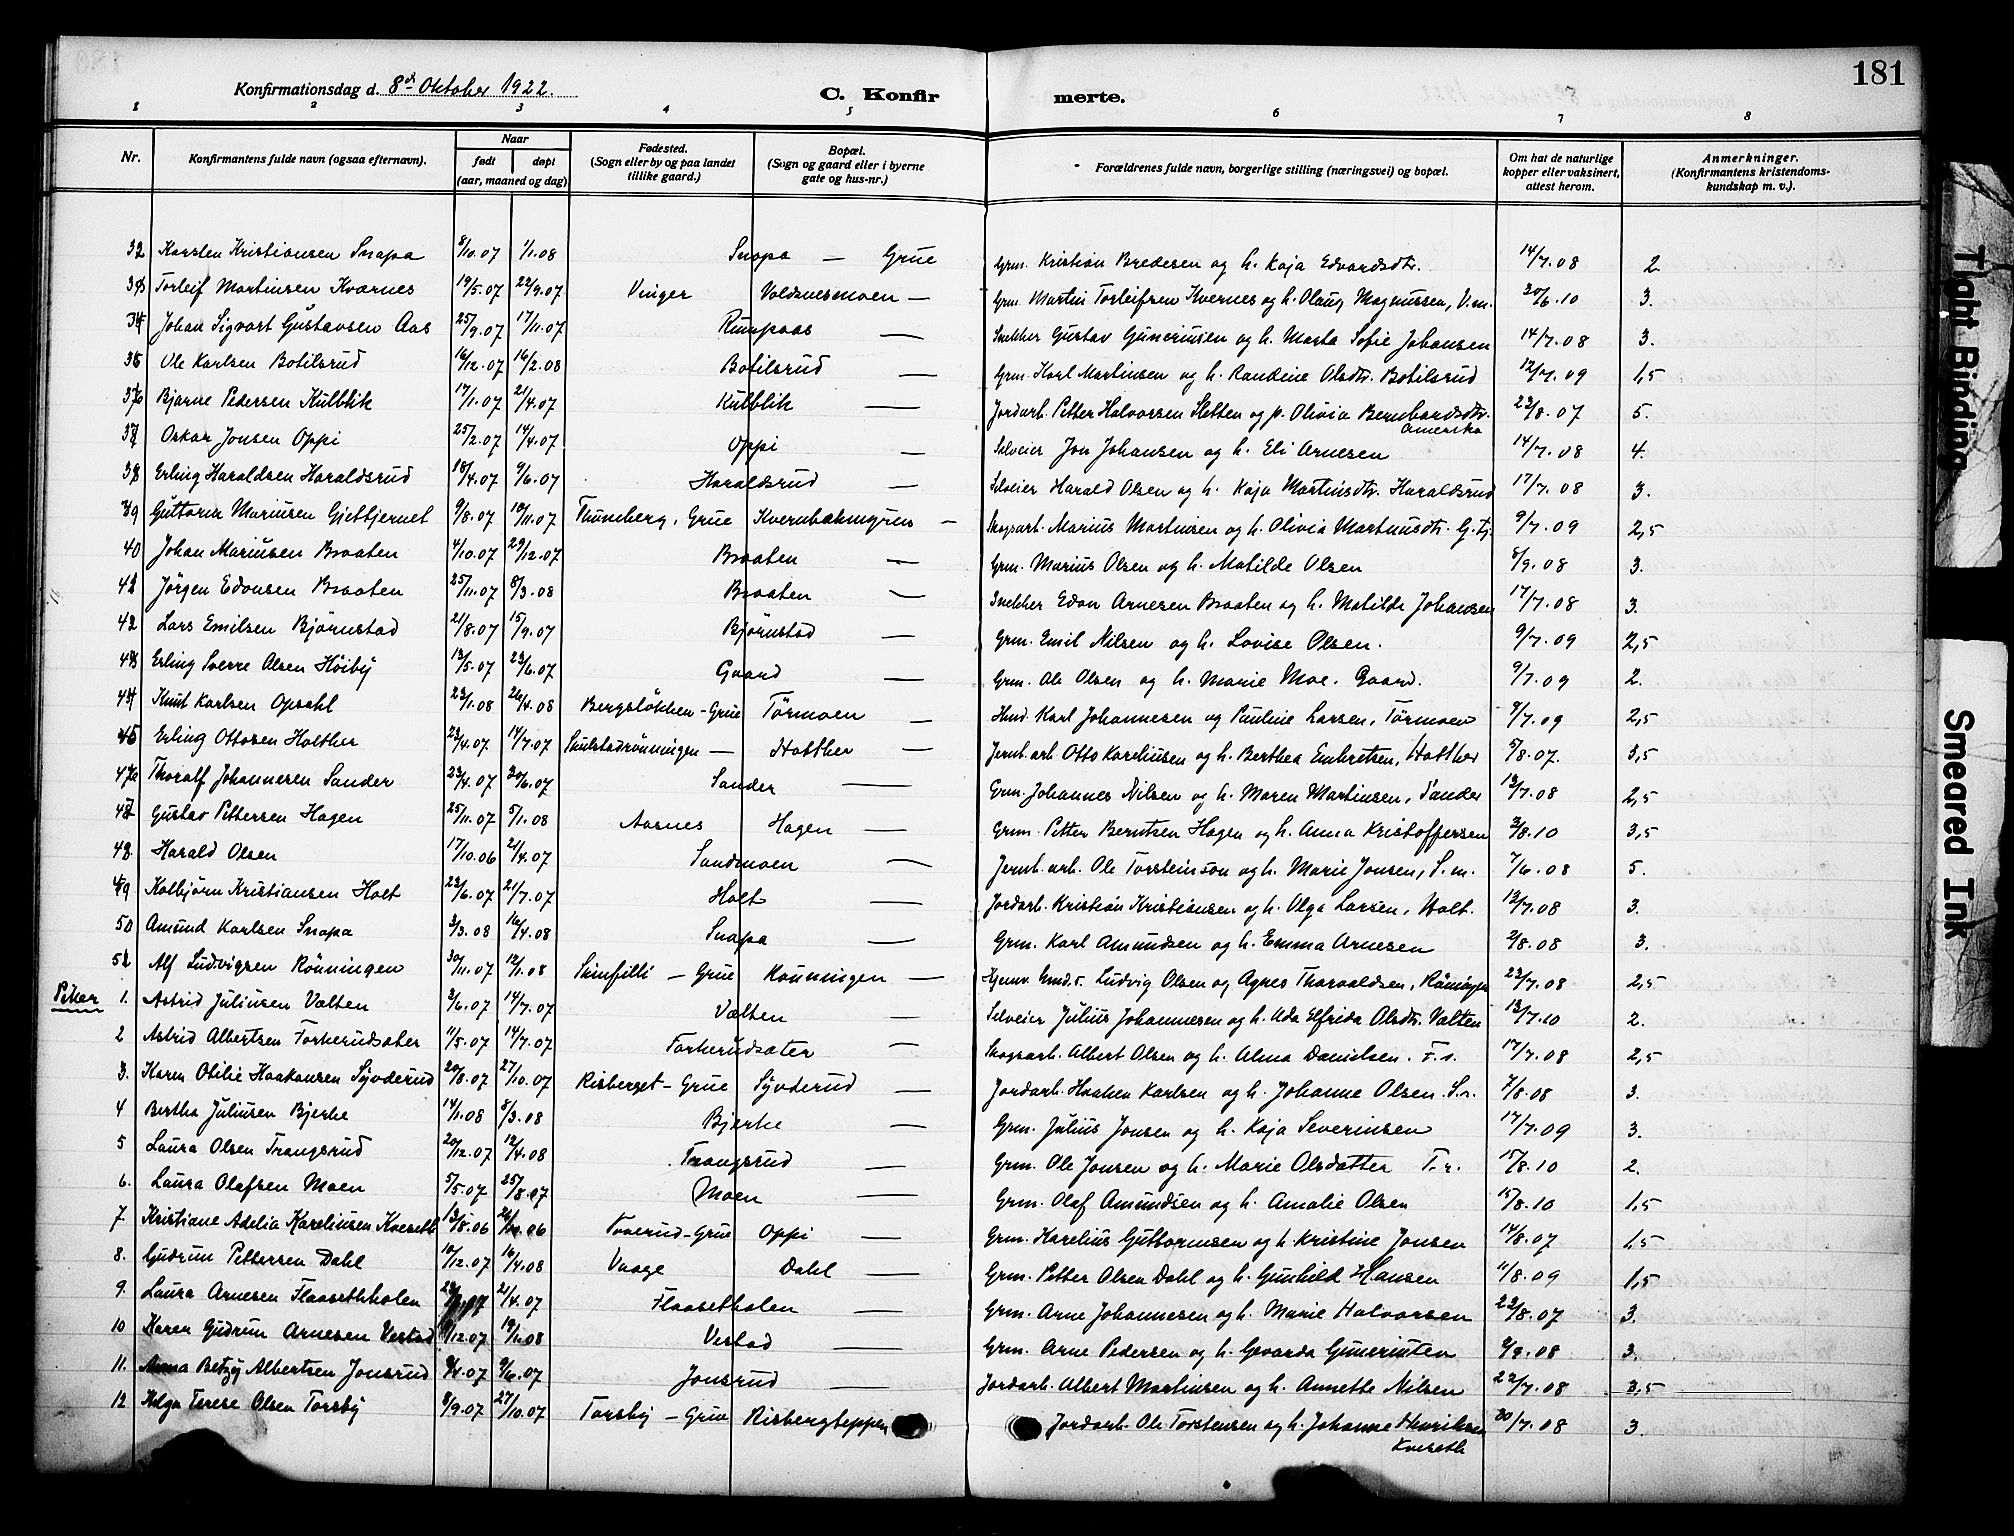 181
Konfirmationsdag d. 8de Oktober 1922.
C. Konfirmerte.
1 2 3 4 5 6 7 8
Nr. Konfirmantens fulde navn (ogsaa efternavn). Naar født døpt (aar, maaned og dag) Fødested. (Sogn eller by og paa landet tillike gaard.) Bopæl. (Sogn og gaard eller i byerne gate og hus-nr.) Forældrenes fulde navn, borgerlige stilling (næringsvei) og bopæl. Om hat de naturlige kopper eller vaksinert, attest herom. Anmerkninger. (Konfirmantens kristendomskundskap m. v.).
32 Karsten Kristiansen Snapa 8/10.07 1/1.08 Snapa — Grue Grm. Kristian Bredesen og h. Kaja Edvardsdtr. 14/7.08 2
33 Torleif Martinsen Kværnes 19/5.07 22/9.07 Vinger Voldsnesmoen — Grm. Martin Torleifsen Kvernes og h. Olaug Magnussen, V.m. 30/6.10 3.
34 Johan Sigvart Gustavsen Aas 25/9.07 17/11.07 — Snekker Gustav Guneriusen og h. Marta Sofie Johansen 14/7.08 3.
35 Ole Karlsen Botilsrud 16/12.07 16/2.08 Botilsrud — Grm. Karl Martinsen og h. Randine Olsdtr. Botilsrud 12/7.09 1,5
36 Bjarne Pedersen Kulblik 17/1.07 21/4.07 Kulblik — Jordarb. Petter Halvorsen Sletten og p. Olivia Bernhardsdtr. Amerika 23/8.07 5.
37 Oskar Jonsen Oppi 25/2.07 14/4.07 Oppi — Selveier Jon Johansen og h. Eli Arnesen 14/7.08 4.
38 Erling Haraldsen Haraldsrud 18/4.07 9/6.07 Haraldsrud — Selveier Harald Olsen og h. Kaja Martinsdtr. Haraldsrud 17/7.08 3.
39 Guttorm Mariusen Gjetkjernet 9/8.07 10/11.07 Thuneberg, Grue — Skogsarb. Marius Martinsen og h. Olivia Martinusdtr. G.tj. 9/7.09 2,5
40 Johan Mariusen Braaten 4/10.07 29/12.07 Braaten — Grm. Marius Olsen og h. Matilde Olsen 8/9.08 3.
41 Jörgen Edvusen Braaten 25/11.07 8/3.08 Braaten — Snekker Arnesen Braaten og h. Matilde Johansen 17/7.08 3.
42 Lars Emilsen Björnstad 21/8.07 15/9.07 Björnstad — Grm. Emil Nilsen og h. Lovise Olsen. 9/7.09 2,5
43 Erling Sverre Olsen Höiby 13/5.07 23/6.07 Gaard — Grm. Ole Olsen og h. Marie Moe. Gaard. 9/7.09 2.
44 Knut Karlsen Opsahl 23/1.08 26/4.08 Bergsløkken - Grue Törmoen — Hmd. Karl Johannesen og Pauline Larsen, Törmoen 9/7.09 2,5
45 Erling Ottosen Holther 23/4.07 14/7.07 Skulstadrönningen — Holther — Jernb.arb. Otto Kareliusen og h. Berthea Embretsen, Holther 5/8.07. 3,5
46 Thoralf Johannesen Sander 23/4.07 30/6.07 Sander — Grm. Johannes Nilsen og h. Maren Martinsen, Sander 13/7.08 2,5
47 Gustav Pettersen Hagen 25/11.07 5/1.08 Aasnes Hagen — Grm. Petter Berntsen Hagen og h. Anna Kristoffersen 3/8.10 3,5
48 Harald Olsen 17/10.06 21/4.07 Sandmoen — Jernb. arb. Ole Torsteinson og h. Marie Jonsen, S.m. 7/6.08 5.
49 Kolbjörn Kristiansen Holt 23/6.07 21/7.07 Holt — Jordarb. Kristian Kristiansen og h. Olga Larsen, Holt. 13/7.08 3.
50 Amund Karlsen Snapa 3/3.08 16/4.08 Snapa — Grm. Karl Amundsen og h. Emma Arnesen 2/8.08 3.
51 Alf Ludvigsen Rönningen 30/11.07 12/1.08 — Grue Rönningen — Ludvig Olsen og Agnes Thorvaldsen, Röningen 23/7.08 2,5
Piker 1. Astrid Juliusen Valten 3/6.07 14/7.07 Valten — Selveier Julius Johannesen og h. Uda Elfrida Olsdtr. Valten 13/7.10 2.
2 Astrid Albertsen Torkerudsæter 11/5.07 14/7.07 Torkerudsæter — Skogsarb. Albert Olsen og h. Alma Danielsen. T.s. 17/7.08 2,5
3. Karen Otilie Haakonsen Syvderud 20/8.07 27/10.07 Risberget - Grue Syvderud — Jordarb. Haaken Karlsen og h. Johanne Olsen. S.r. 7/8.08 3.
4 Bertha Juliusen Bjerke 14/1.08 8/3.08 Bjerke — Grm. Julius Jonsen og h. Kaja Severinsen 17/7.09 3.
5 Laura Olsen Trangsrud 20/12.07 12/4.08 Trangsrud — Grm. Ole Jonsen og h. Marie Olsdatter T.r. 15/8.10 2.
6. Laura Olafsen Moen 5/5.07 25/8.07 Moen — Grm. Olaf Amundsen og h. Amalie Olsen 15/8.10 1,5
7. Kristiane Adelia Kareliusen Kveseth 13/8.06 Tverud-Grue Oppi — Grm. Karelius Guttormsen og h. Kristine Jonsen 14/8.07 1,5
8. Gudrun Pettersen Dahl 10/12.07 16/4.08 Vaage Dahl — Grm. Petter Olsen Dahl og h. Gunhild Hansen 11/8.09 1,5
9. Laura Arnesen Flaasethholen 21/4.07 Flaasetholen — Grm. Arne Johannesen og h. Marie Halvorsen 22/8.07 3.
10 Karen Gudrun Arnesen Vestad /12.07 19/1.08 Vestad — Grm. Arne Pedersen og h. Gevarda Guneriusen 9/8.08 3.
11. Anna Betzy Albertsen Jonsrud 9/4.07 9/6.07 Jonsrud — Jordarb. Albert Martinsen og h. Annette Nilsen 22/7.08 3,5
12 Helga Terese Olsen Torsby 8/9.07 27/10.07 Torsby — Grue Risbergteppen Jordarb. Ole Torstensen og h. Johanne Henriksen Kveseth 30/7.08 3.
Tight Binding
Smeared Ink